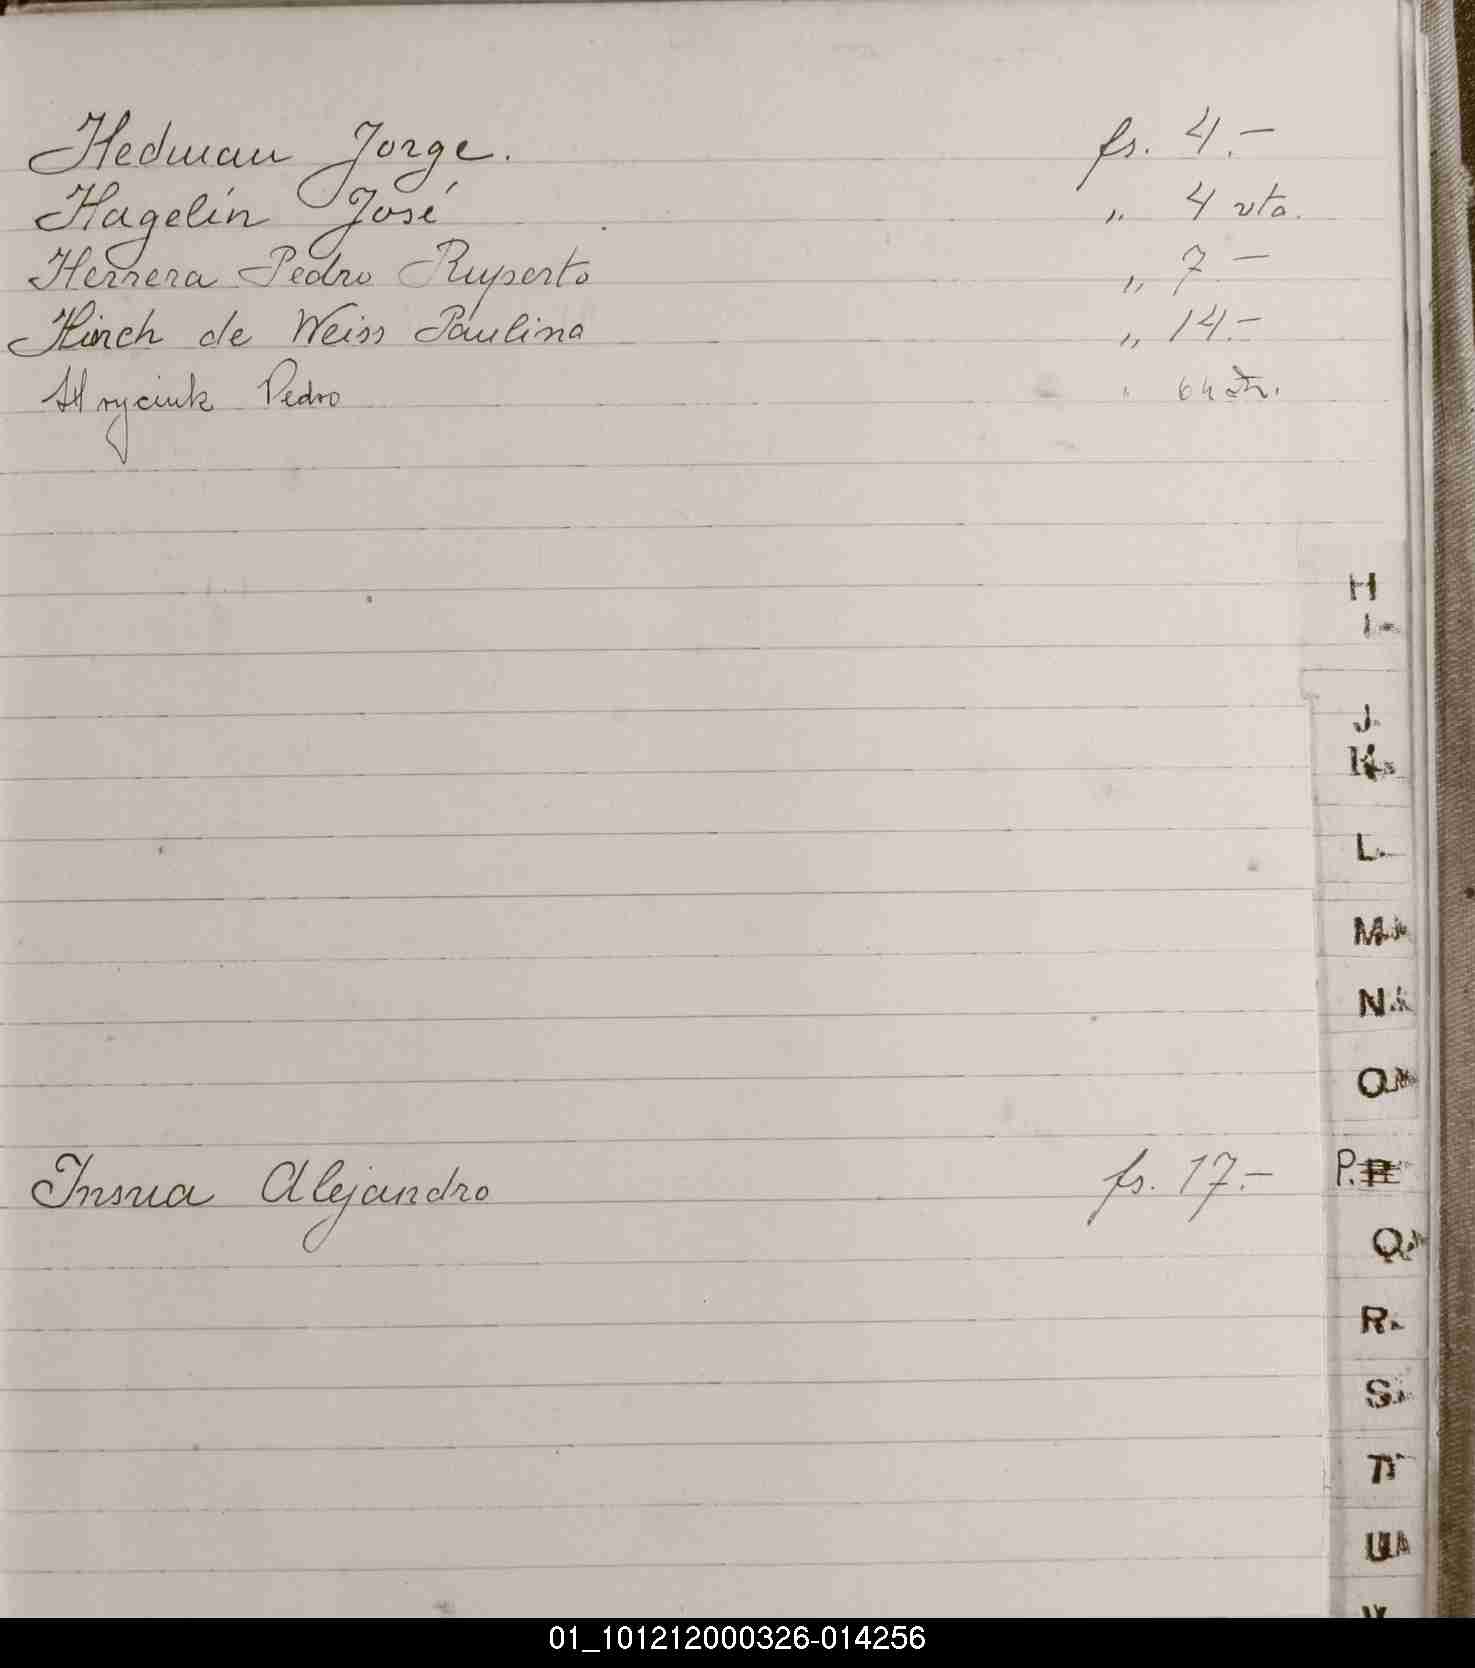 Hedman Jorge. fs. 4.-
Hagelin José „ 4 vta.
Herrera Pedro Ruperto „ 7 -
Hirch de Weiss Paulina „ 14.-
Hryciuk Pedro " 64
H
I
J.
K
L.
M
N
O
Insua Alejandro fs. 17.-
P.
Q
R.
S
T
U
V
01_101212000326-014256